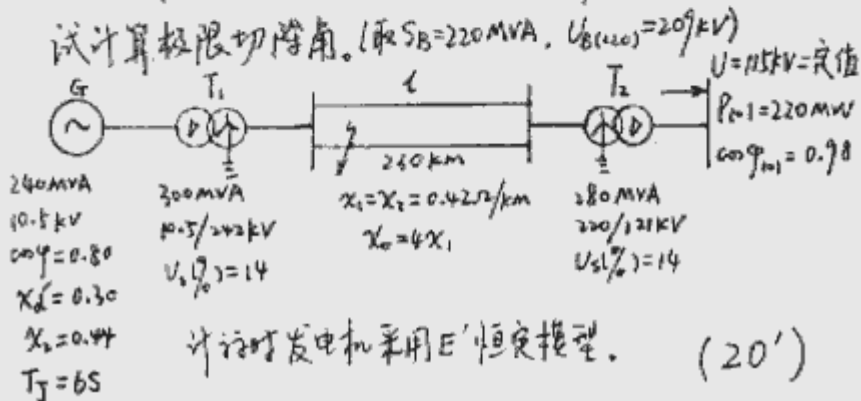 试计算极限切除角。(取 S_B=220MVA, U_B(220)=209kV)
G
T₁
l
T₂
U=115kV=定值
P_(0)=220MW
cosφ_(0)=0.98
240MVA
10.5kV
cosφ=0.80
x_d'=0.30
x₂=0.44
T_J=6S
300MVA
10.5/242kV
U_s(%)=14
x₁=x₂=0.42Ω/km
x₀=4x₁
280MVA
220/121kV
U_s(%)=14
计算时发电机采用E'恒定模型. (20')